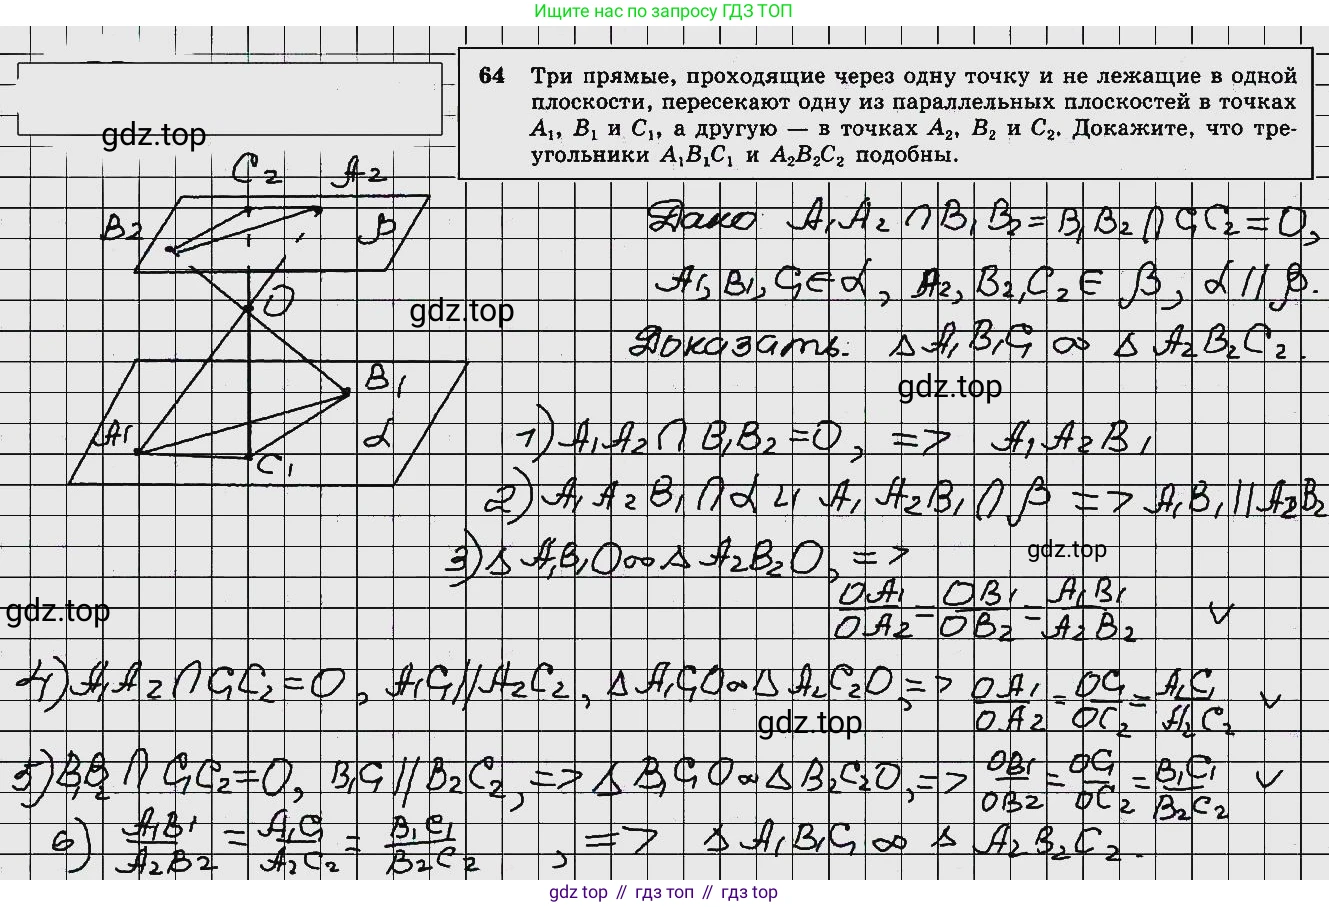 Ищите нас по запросу ГДЗ ТОП
64 Три прямые, проходящие через одну точку и не лежащие в одной
плоскости, пересекают одну из параллельных плоскостей в точках
A₁, B₁ и C₁, а другую — в точках A₂, B₂ и C₂. Докажите, что тре-
угольники A₁B₁C₁ и A₂B₂C₂ подобны.
gdz.top
C₂ A₂
B₂ β
O
gdz.top
B₁
A₁ α
C₁
Дано: A₁A₂ ∩ B₁B₂ = B₁B₂ ∩ C₁C₂ = O,
A₁, B₁, C₁ ∈ α, A₂, B₂, C₂ ∈ β, α || β.
Доказать: Δ A₁B₁C₁ ∞ Δ A₂B₂C₂.
gdz.top
1) A₁A₂ ∩ B₁B₂ = O, => A₁A₂B₁
2) A₁A₂B₁ ∩ α и A₁A₂B₁ ∩ β => A₁B₁ || A₂B₂
gdz.top
3) Δ A₁B₁O ∞ Δ A₂B₂O, =>
OA₁/OA₂ = OB₁/OB₂ = A₁B₁/A₂B₂ ∨
gdz.top
4) A₁A₂ ∩ C₁C₂ = O, A₁C₁ || A₂C₂, Δ A₁C₁O ∞ Δ A₂C₂O, => OA₁/OA₂ = OC₁/OC₂ = A₁C₁/A₂C₂ ∨
gdz.top
5) B₁B₂ ∩ C₁C₂ = O, B₁C₁ || B₂C₂, => Δ B₁C₁O ∞ Δ B₂C₂O, => OB₁/OB₂ = OC₁/OC₂ = B₁C₁/B₂C₂ ∨
6) A₁B₁/A₂B₂ = A₁C₁/A₂C₂ = B₁C₁/B₂C₂, => Δ A₁B₁C₁ ∞ Δ A₂B₂C₂.
gdz top // гдз топ // гдз top